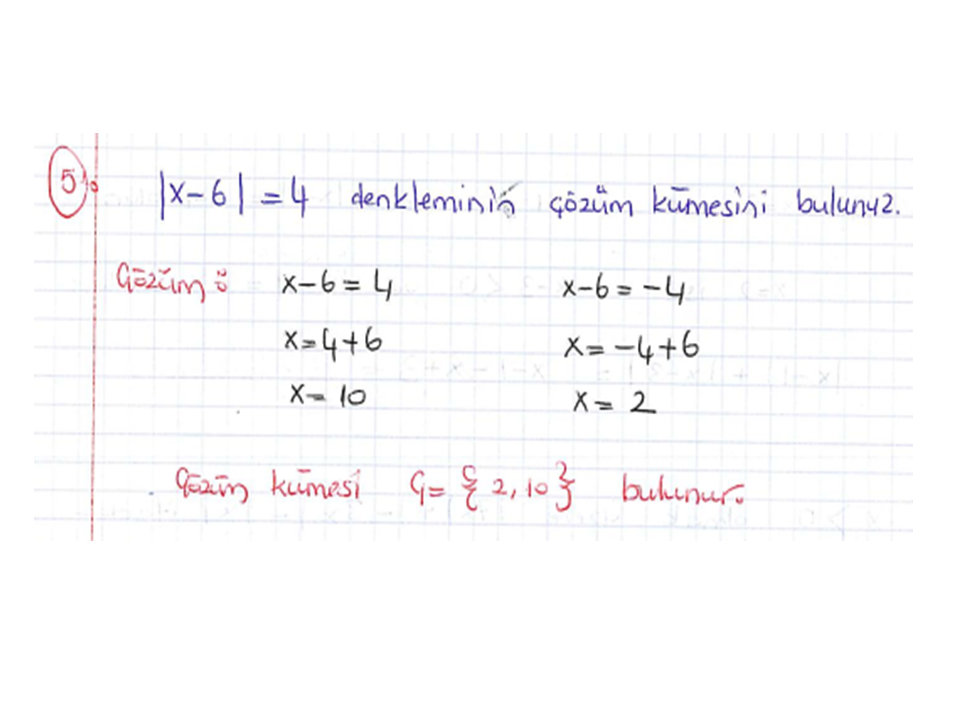 5)
|x-6| = 4 denkleminin çözüm kümesini bulunuz.
Çözüm: x-6 = 4 x-6 = -4
x = 4+6 x = -4+6
x = 10 x = 2
Çözüm kümesi Ç = { 2, 10 } bulunur.